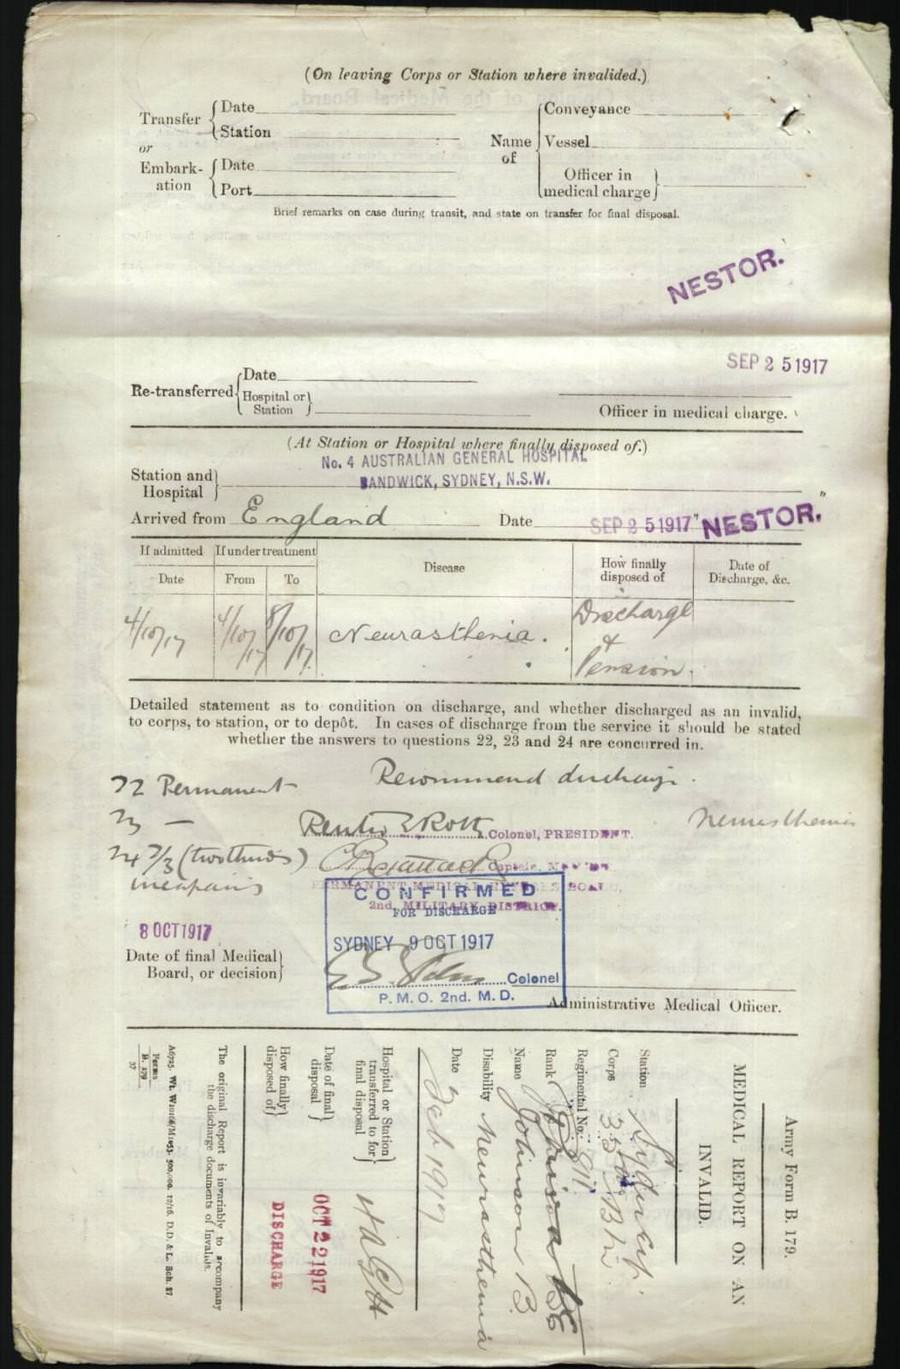 (On leaving Corps or Station where invalided.)
Transfer
or
Embark-
ation
Date
Station
Date
Port
Name
of
Conveyance
Vessel
Officer in
medical charge
Brief remarks on case during transit, and state on transfer for final disposal.
NESTOR.
SEP 25 1917
Re-transferred
Date
Hospital or
Station
Officer in medical charge.
(At Station or Hospital where finally disposed of.)
No. 4 AUSTRALIAN GENERAL HOSPITAL
RANDWICK, SYDNEY, N.S.W.
Station and
Hospital
Arrived from England Date SEP 25 1917 NESTOR.
If admitted If under treatment Disease How finally
disposed of Date of
Discharge, &c.
Date From To
4/10/17 4/10/17 8/10/17 Neurasthenia. Discharge
+
Pension.
Detailed statement as to condition on discharge, and whether discharged as an invalid,
to corps, to station, or to depôt. In cases of discharge from the service it should be stated
whether the answers to questions 22, 23 and 24 are concurred in.
22 Permanent Recommend discharge.
23 — Colonel, PRESIDENT. Neurasthenia
24 2/3 (two thirds) Captain,
PERMANENT MEDICAL BOARD,
2nd. MILITARY DISTRICT.
CONFIRMED
FOR DISCHARGE
SYDNEY 9 OCT 1917
Colonel
P. M. O. 2nd. M. D.
8 OCT 1917
Date of final Medical
Board, or decision
Administrative Medical Officer.
Army Form B. 179.
MEDICAL REPORT ON AN
INVALID.
Station Sydney
Corps 35th Btn
Regimental No.
Rank
Name Johnson B.
Disability Neurasthenia
Date Feb 1917
Hospital or Station
transferred to for
final disposal 4 AGH
Date of final
disposal OCT 22 1917
How finally
disposed of DISCHARGE
The original Report is invariably to accompany
the discharge documents of Invalids.
Forms
B. 179
37